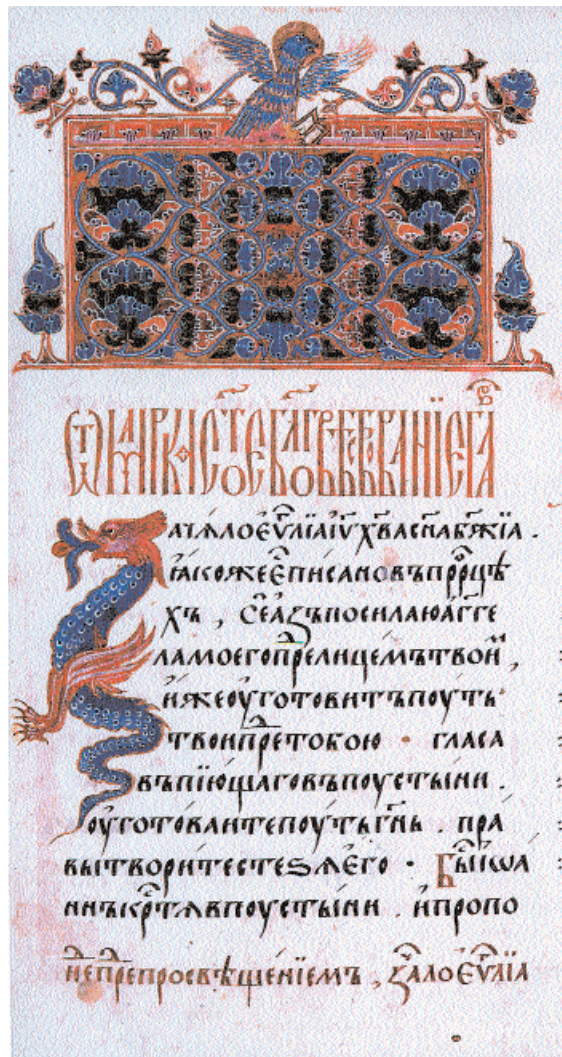 ѿ ма́рка ст҃ое бл҃говѣствованїе гл҃а
зача́ло еѵⷢ҇лїа іѵ҃ хв҃а сн҃а бж҃їа .
ꙗ́коже є҆́ писано въ прⷪ҇рцѣ
хъ , се а́зъ посилаю а́гг҃е
ла моего преⷣ лицемъ твоиⷨ ,
и́же ᲂу҆готовитъ поуть
твои преⷣ тобою · гласа
въпїю́щаго въ поусты́ни .
ᲂу҆гото́ваите поу́ть гн҃ь . пра
вы твори́те стеѕѧ е҆го̀ · бы́ⷭ іѡа
ннъ крⷭ҇тѧ в поусты́ни . и҆ пропо
неⷣ преⷣ просвѣще́нїемъ , зача́ло еѵⷢ҇лїа